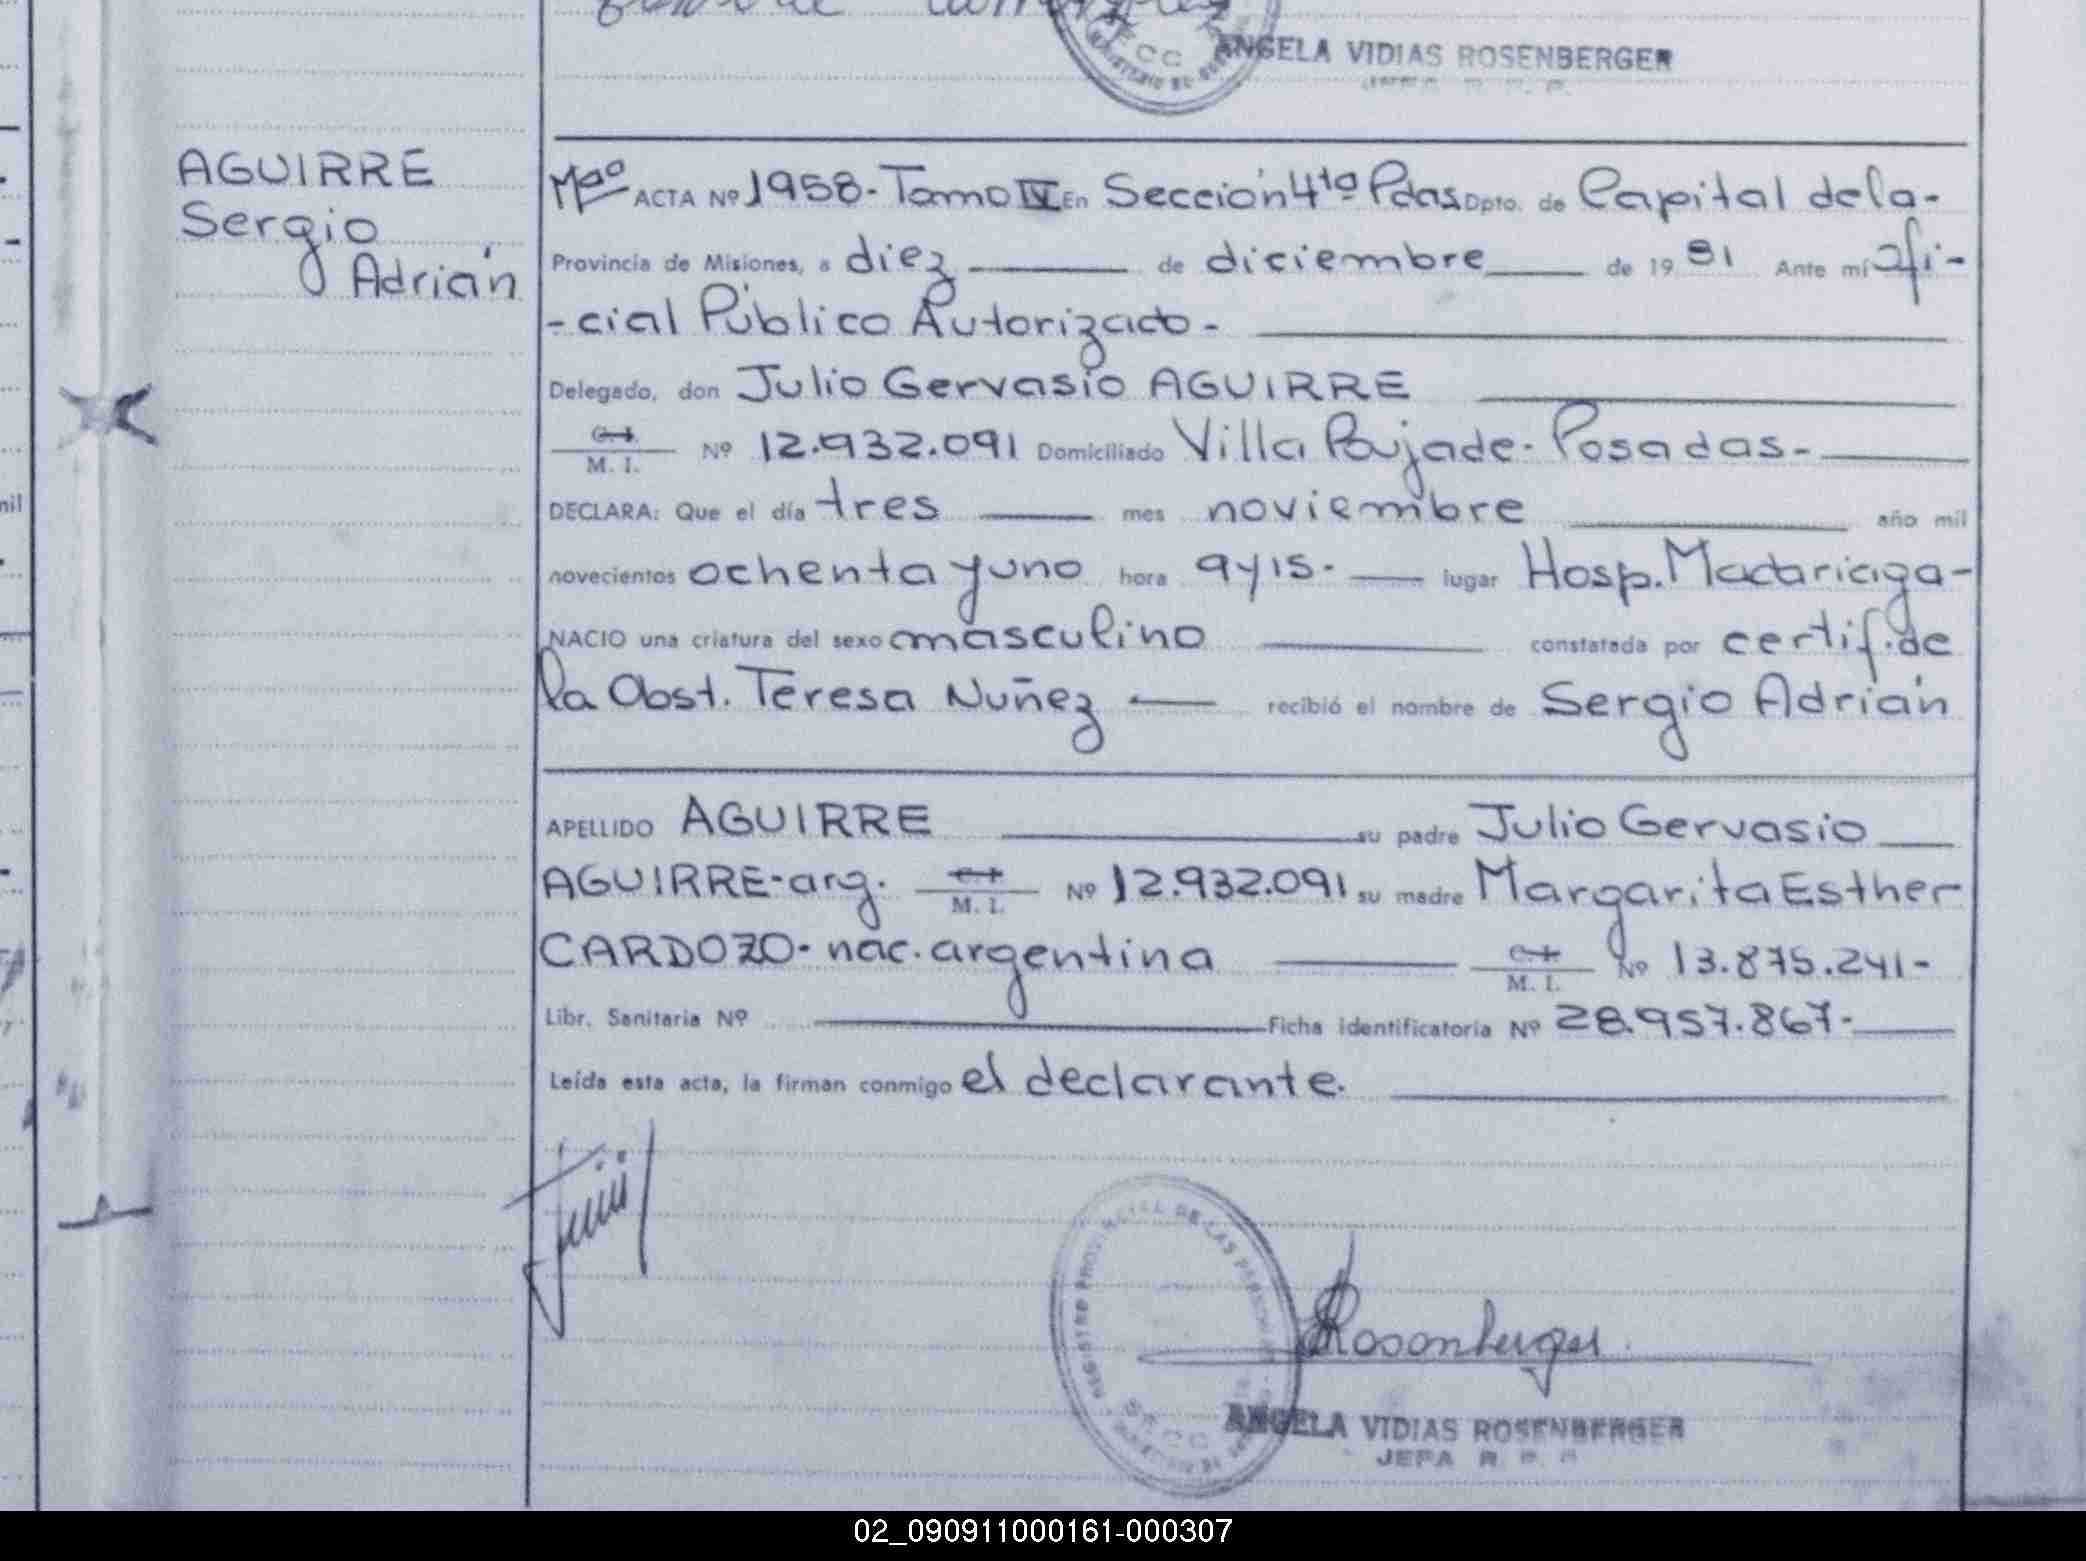 ANGELA VIDIAS ROSENBERGER
JEFA R. P. P.
AGUIRRE
Sergio
Adrián
ACTA Nº 1958 - Tomo IV En Sección 4ta Pdas Dpto. de Capital de la -
Provincia de Misiones, a diez de diciembre de 1981 Ante mí Ofi -
- cial Público Autorizado -
Delegado, don Julio Gervasio AGUIRRE
C. I.
M. I. Nº 12.932.091 Domiciliado Villa Poujade - Posadas -
DECLARA: Que el día tres mes noviembre año mil
novecientos ochenta y uno hora 9 y 15 - lugar Hosp. Madariaga -
NACIO una criatura del sexo masculino constatada por certif. de
la Obst. Teresa Nuñez recibió el nombre de Sergio Adrián
APELLIDO AGUIRRE su padre Julio Gervasio
AGUIRRE - arg. C. I. M. I. Nº 12.932.091 su madre Margarita Esther
CARDOZO - nac. argentina C. I. M. I. Nº 13.875.241 -
Libr. Sanitaria Nº Ficha identificatoria Nº 28.957.867 -
Leída esta acta, la firman conmigo el declarante.
REGISTRO PROVINCIAL DE LAS PERSONAS
Rosenberger
ANGELA VIDIAS ROSENBERGER
JEFA R. P. P.
mil
02_090911000161-000307